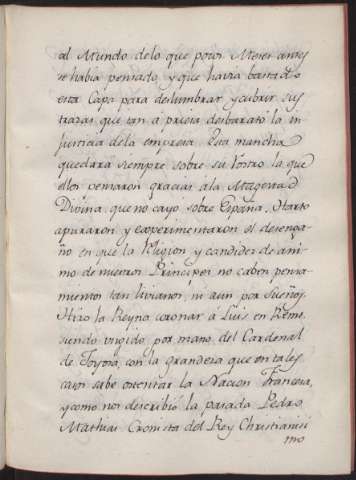 al Mundo delo que pocos Meses antes
se havia pensado, y que havia bastado
esta Capa para deslumbrar y cubrir sus
trazas, que tan a priesa desbarató la in-
justicia dela empresa. Esta mancha
quedará siempre sobre su rostro, la que
ellos pensaron gracias ála Magestad
Divina, que no cayó sobre España. Harto
apuraron, y experimentaron el desenga-
ño en que la Religion, y candidez de áni-
mo de nuestros Principes no caben pensa-
mientos tan livianos, ni aun por sueños.
Hizo la Reyna coronar a Luis en Rems,
siendo ungido por mano del Cardenal
de Joyosa, con la grandeza que en tales
casos sabe ostentar la Nacion Francesa,
y como nos describió la pasada Pedro
Mathias Cronista del Rey Christianisi
mo